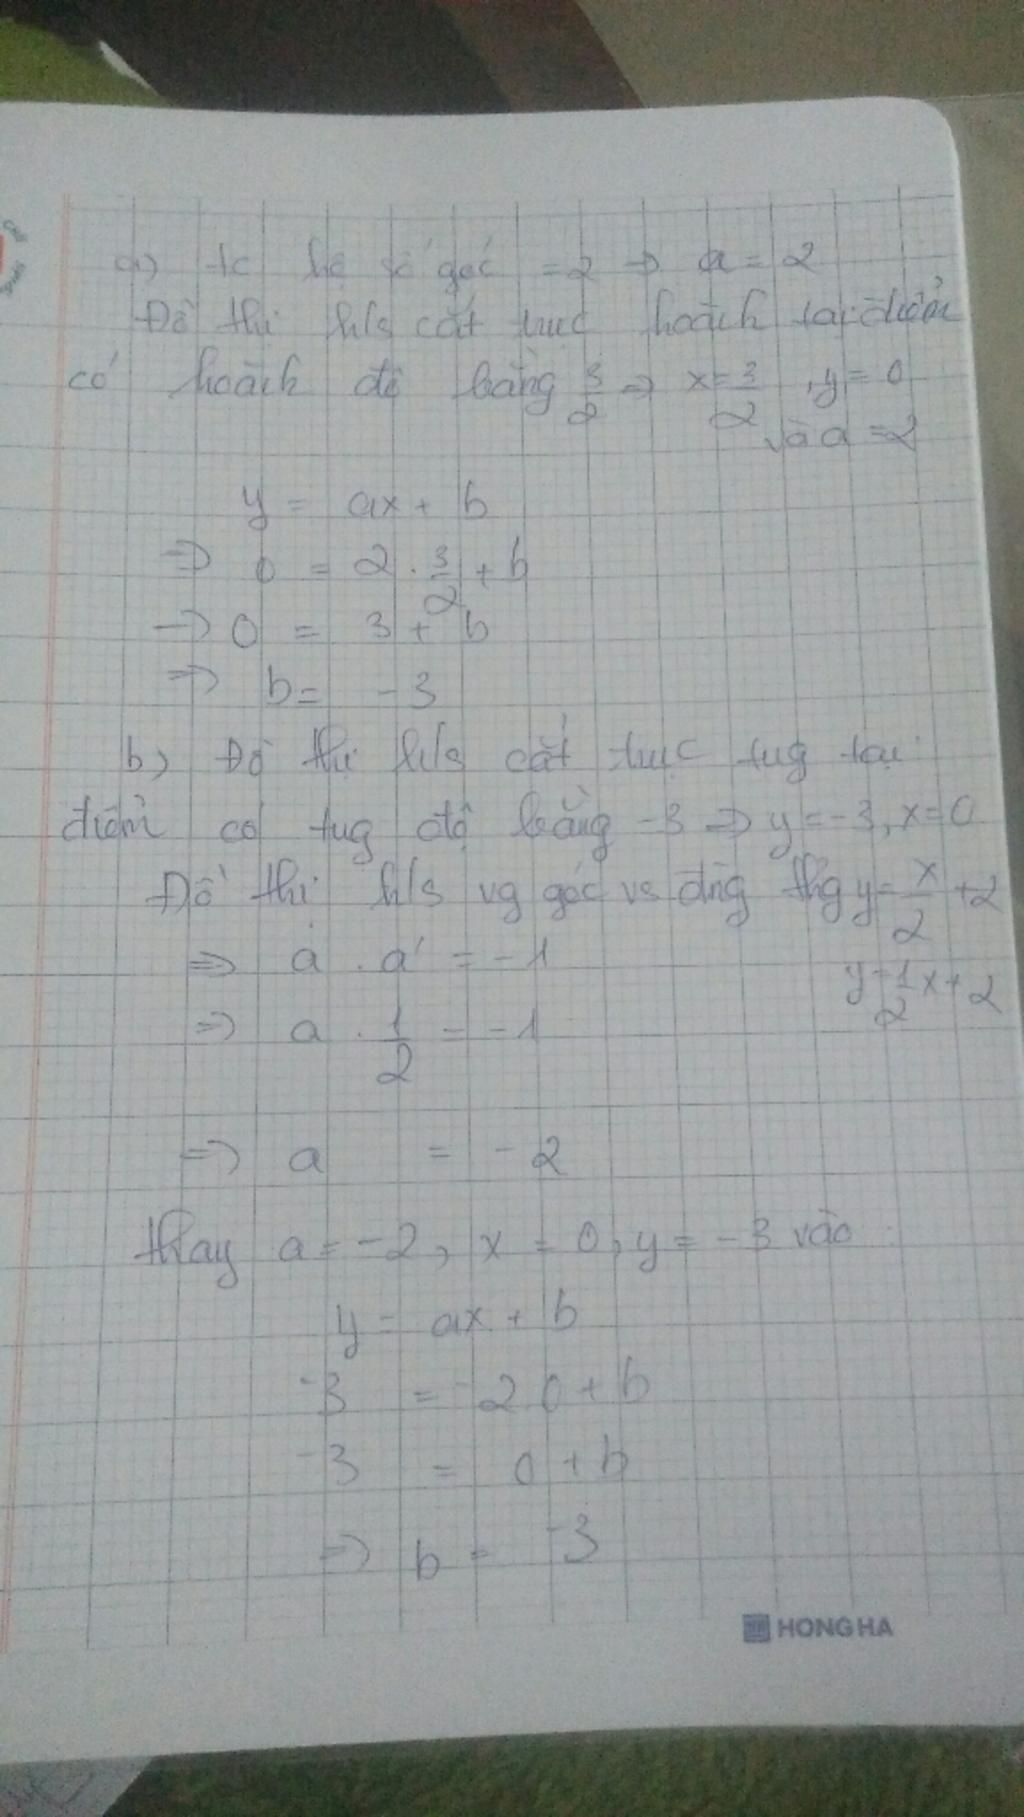 a) tc hệ số góc = 2 => a = 2
Đồ thị h/s cắt trục hoành tại điểm
có hoành độ bằng 3/2 => x = 3/2, y = 0
và a = 2
y = ax + b
=> 0 = 2 . 3/2 + b
-> 0 = 3 + b
=> b = -3
b) Đồ thị h/s cắt trục tug tại
điểm có tug độ bằng -3 => y = -3, x = 0
Đồ thị h/s vg góc vs đng thg y = x/2 + 2
=> a . a' = -1
y = 1/2 x + 2
=> a . 1/2 = -1
=> a = -2
thay a = -2, x = 0, y = -3 vào :
y = ax + b
-3 = -2.0 + b
-3 = 0 + b
=> b = -3
HONG HA